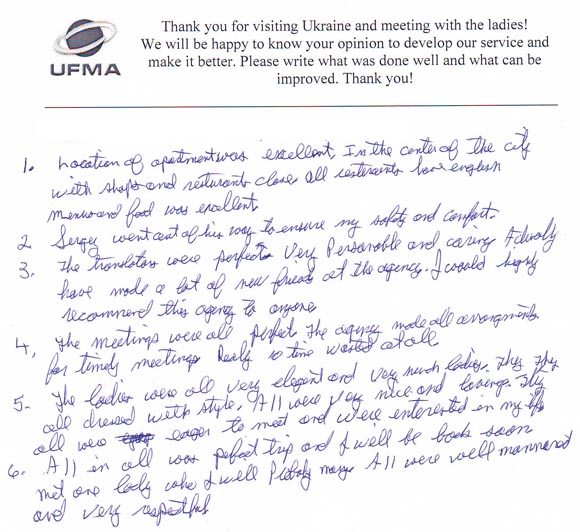 UFMA
Thank you for visiting Ukraine and meeting with the ladies!
We will be happy to know your opinion to develop our service and
make it better. Please write what was done well and what can be
improved. Thank you!
1. Location of apartment was excellent, In the center of the city
with shops and resturants close, all resteraints have english
menus and food was excellent
2 Sergey went out of his way to ensure my safety and comfort.
3. The translators were perfect. Very Personable and caring. Actually
have made a lot of new friends at the agency. I would highly
recommend this agency to anyone
4, The meetings were all perfect The agency made all arrangments
for timely meetings Really no time wasted at all
5. The ladies were all very elegant and very much ladies. They
all dressed with style. All were very nice and loving. They
all were eager to meet and were interested in my life
6. All in all was perfect trip and I will be back soon
met one lady who I will Probaly marry All were well mannered
and very respectful